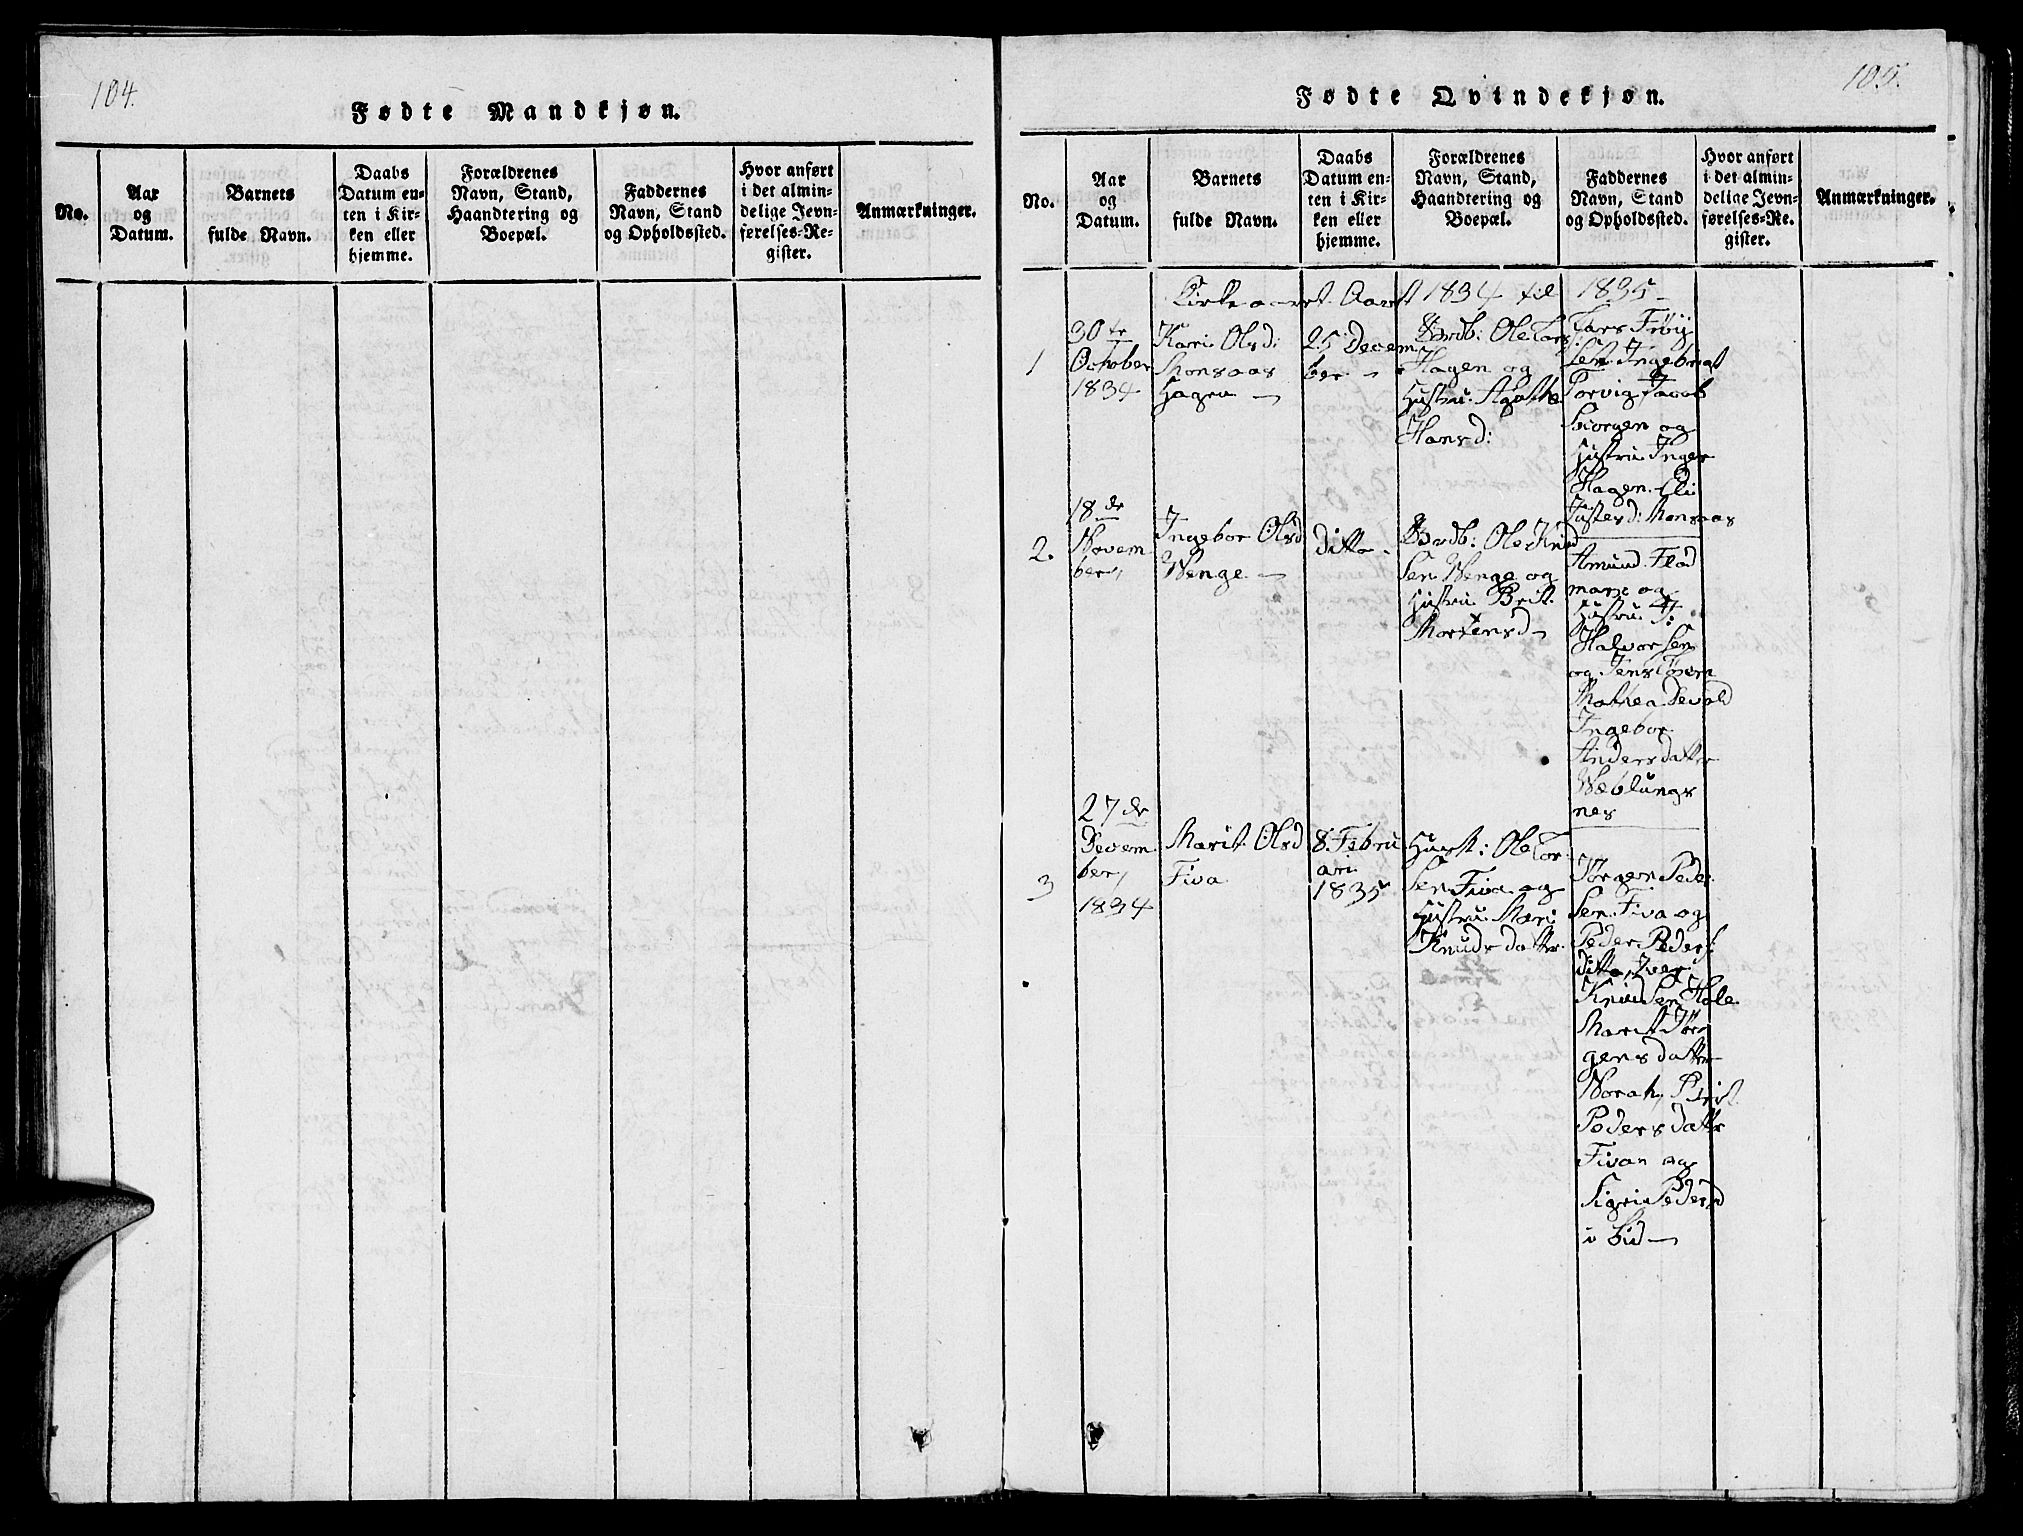 104.
Fødte Mandkjøn.
No.
Aar
og
Datum.
Barnets
fulde Navn.
Daabs
Datum en-
ten i Kir-
ken eller
hjemme.
Forældrenes
Navn, Stand,
Haandtering og
Boepæl.
Faddernes
Navn, Stand
og Opholdssted.
Hvor anført
i det almin-
delige Jevn-
førelses-Re-
gister.
Anmærkninger.
105.
Fødte Qvindekjøn.
No.
Aar
og
Datum.
Barnets
fulde Navn.
Daabs
Datum en-
ten i Kir-
ken eller
hjemme.
Forældrenes
Navn, Stand,
Haandtering og
Boepæl.
Faddernes
Navn, Stand
og Opholdssted.
Hvor anført
i det almin-
delige Jevn-
førelses-Re-
gister.
Anmærkninger.
Aaret 1834 til 1835
1
30te
October
1834
Kari Olsd:
Monsaas
Hagen
25 Decem
ber
Brdb: Ole Lars
Hagen og
Hustru Agathe
Hansd:
Lars Frøy
Sen Ingebrigt
Torvig Jacob
og
Hustru Inger
Hagen
Monsaas
2.
18de
Novem
ber,
Ingebor Olsd
Venge
ditto
Brdb: Ole Knud
Sen Venge og
Hustru Brit
Mortensd
Amund Flad
marx og
Hustru I:
Halvor Sen
og Jens
Mathea Devold
Ingebor
Andersdatter
Væblungs
nes
3
27de
Decem
ber,
1834
Marit Olsd
Fiva
8 Febru
ari
1835
Huusm: Ole Tor
Sen Fiva og
Hustru Mari
Knudsdatter
Jörgen Peder
Sen Fiva og
Peder Peders:
ditto, Iver
Knud Sen Hole
Marit Jör
gensdatter
Norah, Brit
Pedersdatter
Fivan og
Sigri Pedersd
i bid